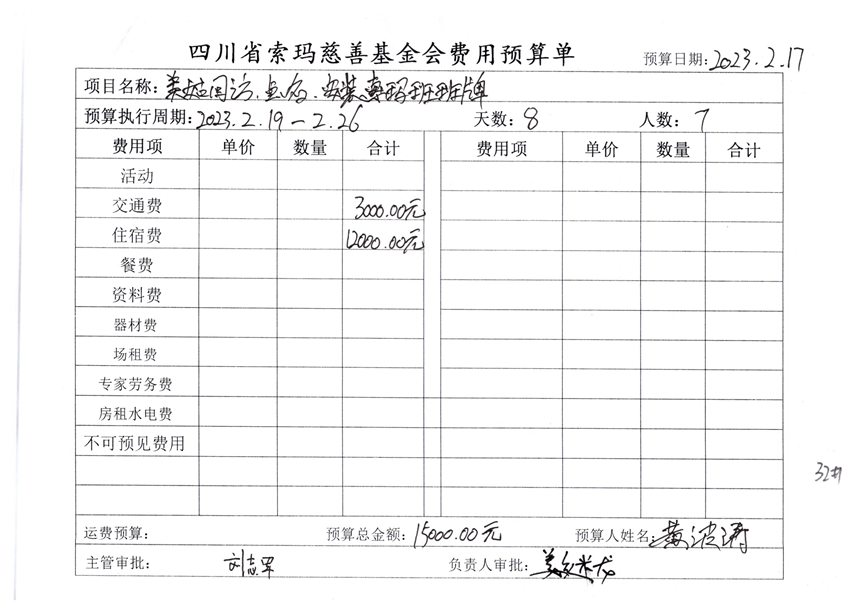 四川省索玛慈善基金会费用预算单
预算日期:2023.2.17
项目名称: 美姑回访、安装索玛班班牌
预算执行周期: 2023.2.19-2.26 天数: 8 人数: 7
费用项 单价 数量 合计 费用项 单价 数量 合计
活动
交通费 3000.00元
住宿费 12000.00元
餐费
资料费
器材费
场租费
专家劳务费
房租水电费
不可预见费用
32#
运费预算: 预算总金额: 15000.00元 预算人姓名: 黄波涛
主管审批: 刘志军 负责人审批: